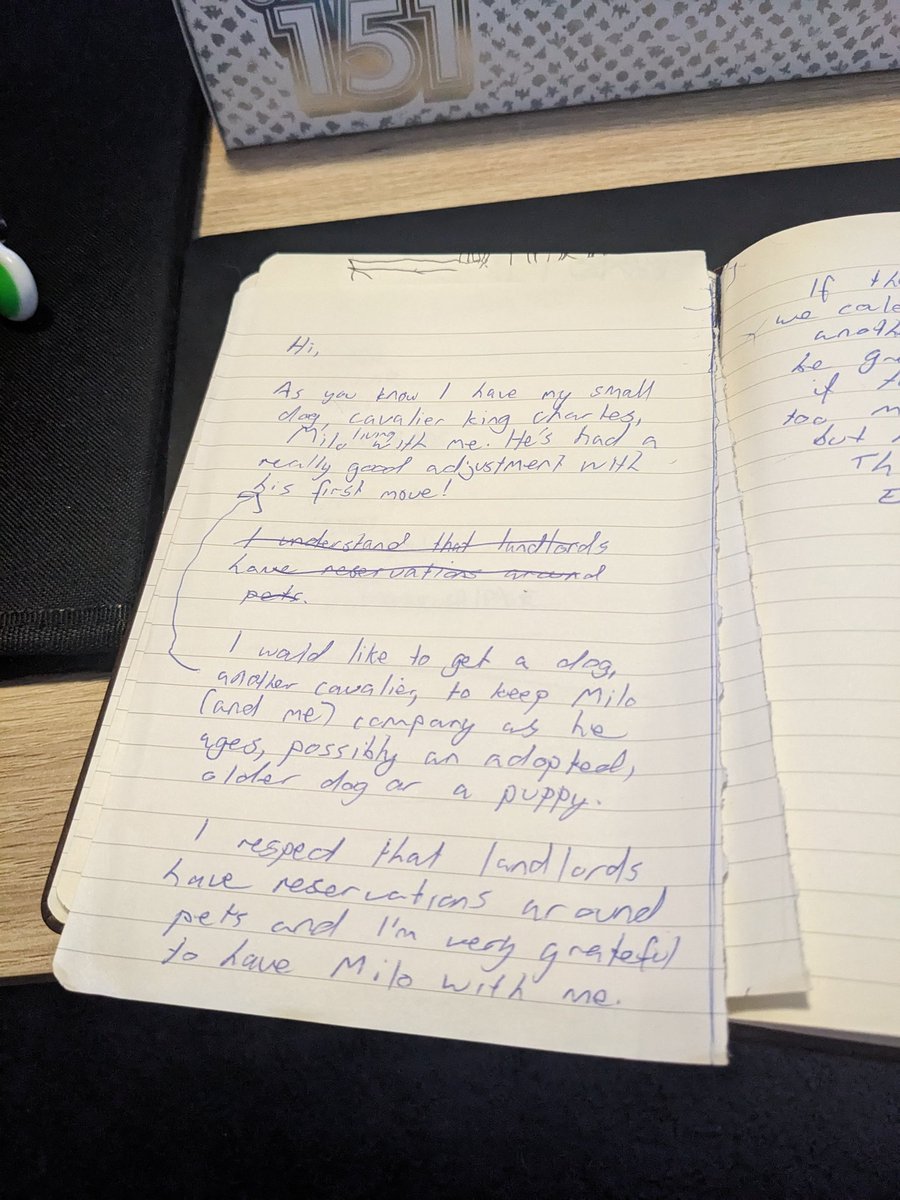 151
Hi,
As you know I have my small
dog, cavalier king charles,
Milo living with me. He's had a
really good adjustment with
his first move!
I understand that landlords
have reservations around
pets.
I would like to get a dog,
another cavalier, to keep Milo
(and me) company as he
ages, possibly an adopted,
older dog or a puppy.
I respect that landlords
have reservations around
pets and I'm very grateful
to have Milo with me.
If
we
be
if
too
but